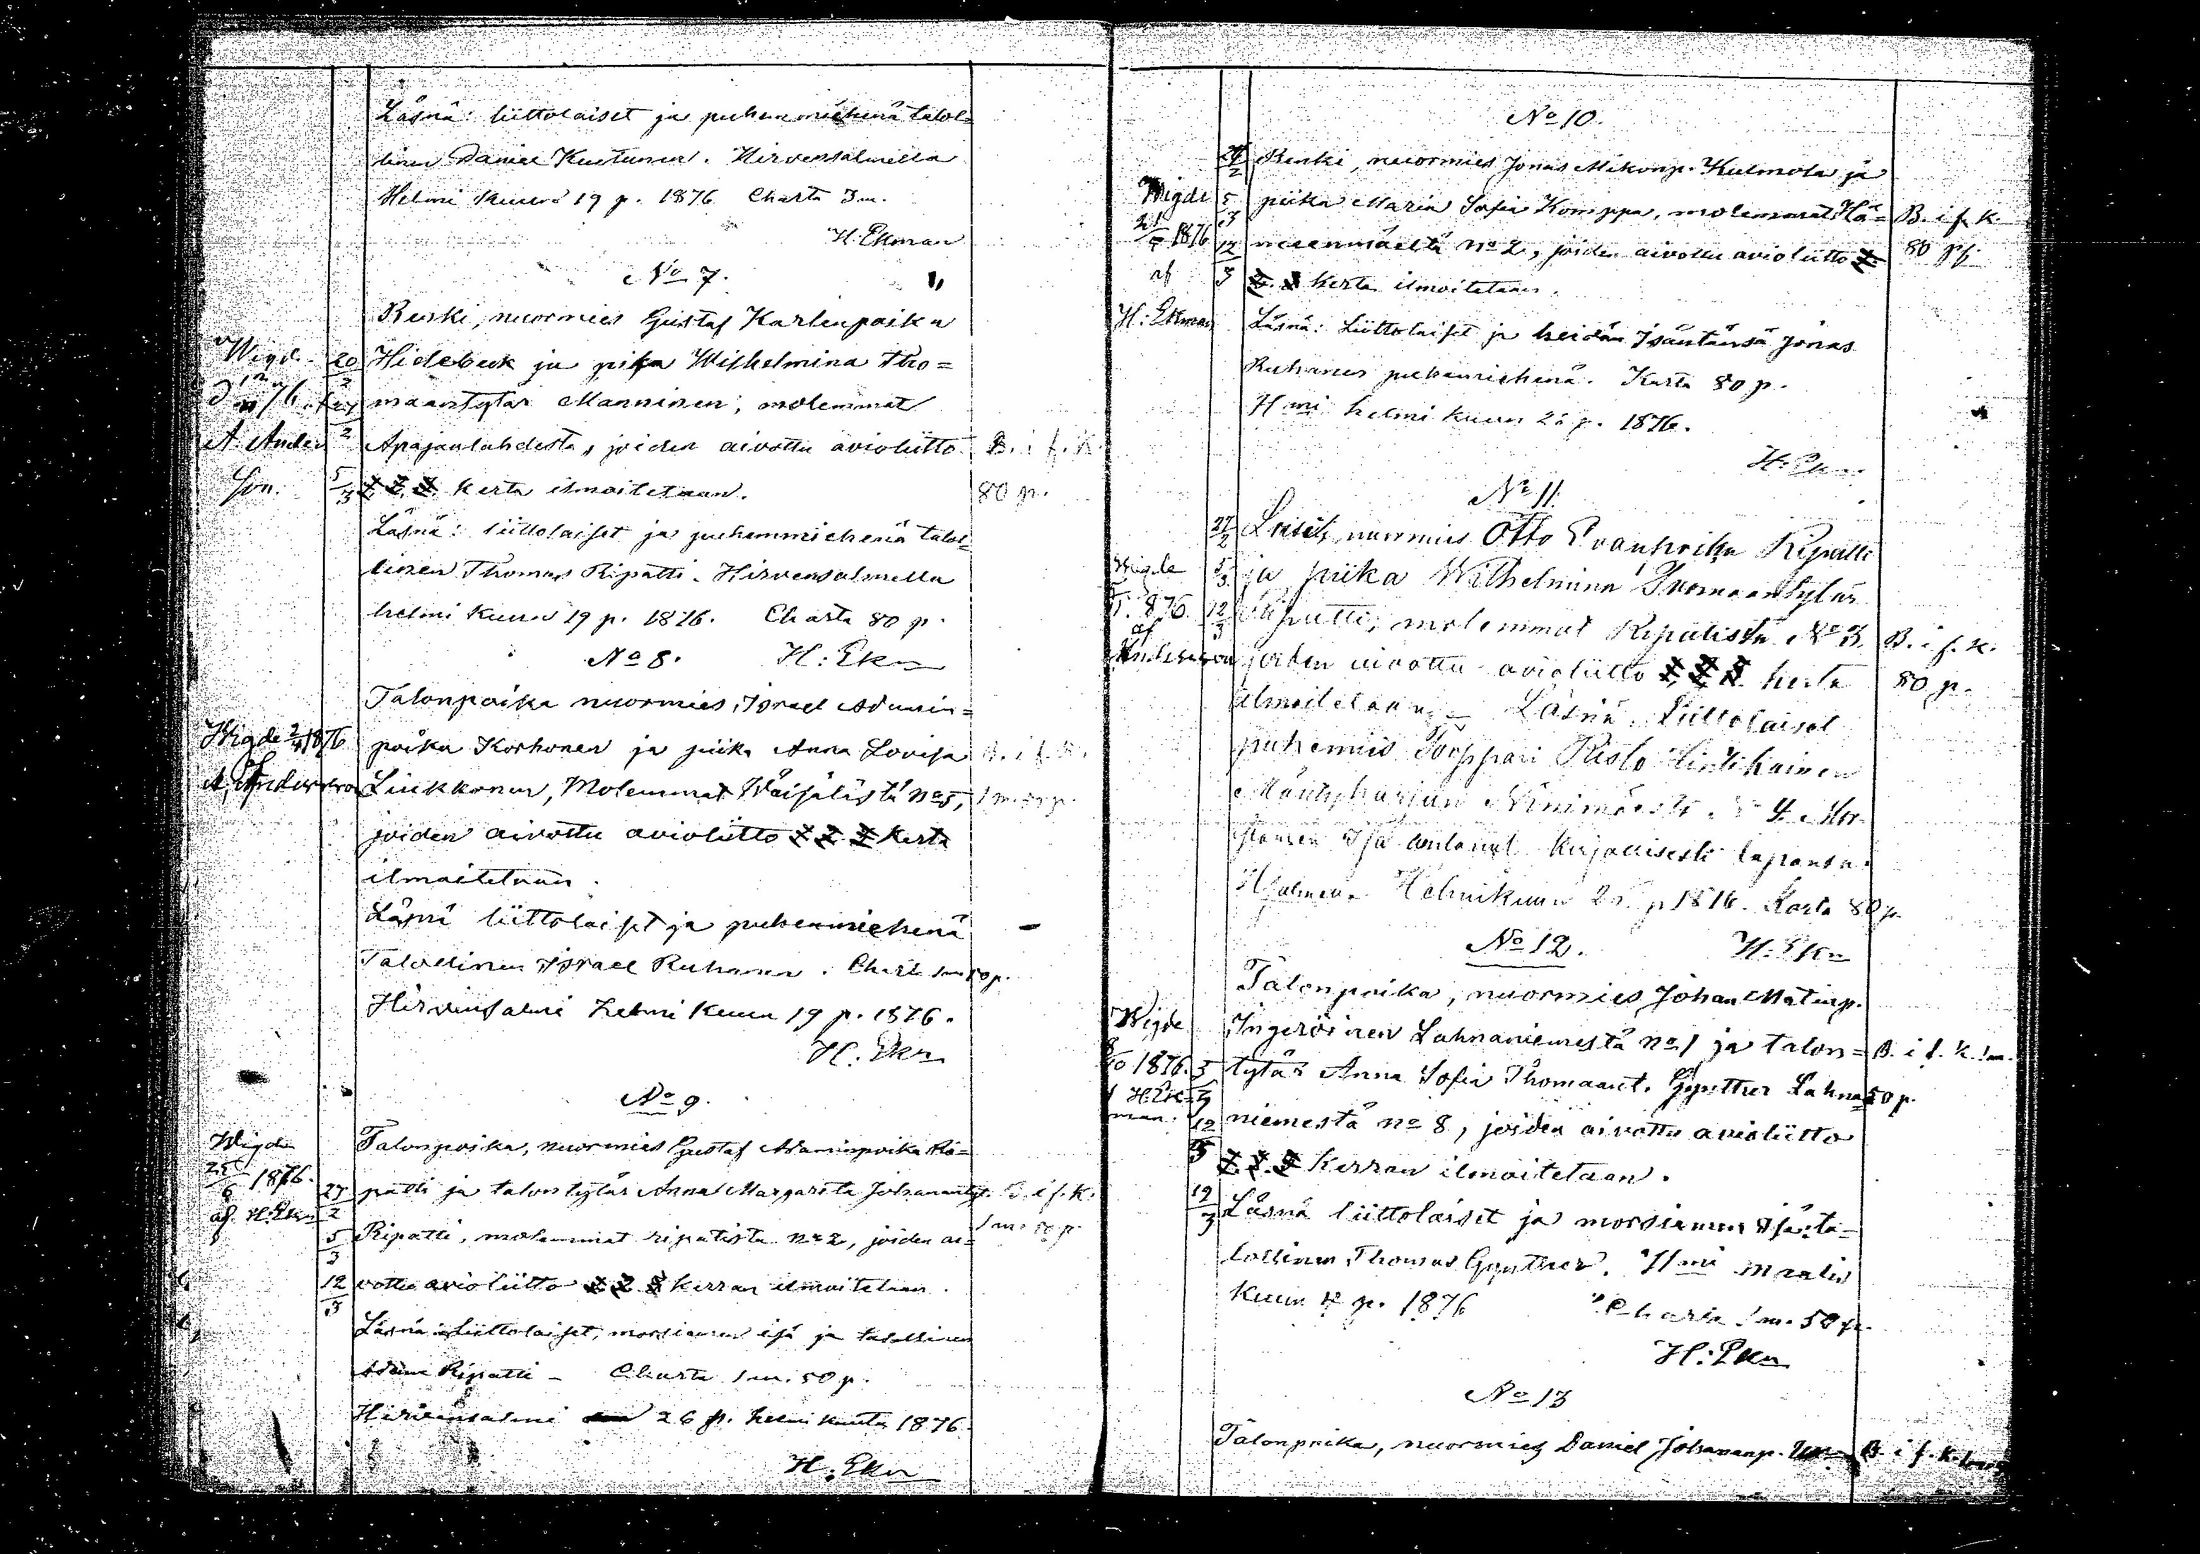 Läsnä: liittolaiset ja puhemmiehenä talol=
linen Daniel Kustunen. Hirvensalmella
Helmi Kuun 19 p. 1876 Charta 3 m.
H. Ekman
No 7.
Renki, nuormies Gustaf Karlenpoika
Hidebeck ja piika Wilhelmina Tho=
maantytär Manninen, molemmat
Apajanlahdesta, joiden aivottu avioliitto
1. 2. 3. kerta ilmoitetaan.
Läsnä: liittolaiset ja puhemmiehenä talol=
linen Thomas Ripatti. Hirvensalmella
helmi Kuun 19 p. 1876. Charta 80 p.
Wigd.
A. Ander
son.
20
2
27
2
5
3
B. i f. K.
80 p.
No 8. H: Ekn
Talonpoika nuormies, Israel Adamin=
poika Korhonen ja piika Anna Lovisa
Liukkonen, Molemmat Wäisälästä No 5,
joiden aivottu avioliitto 1. 2. 3. kerta
ilmoitetaan.
Läsnä liittolaiset ja puhemmiehenä
Talollinen Israel Ruhanen. Charta 1 m 50 p.
Hirvensalmi helmi Kuun 19 p. 1876.
H. Ekn
Wigde 2/4 1876
A. Anderson
B. i f. K.
No 9.
Talonpoika, nuormies Gustaf Adaminpoika Ri=
patti ja talontytär Anna Margareta Johanantyt.
Ripatti, molemmat ripatista No 2, joiden ai=
vottu avioliitto 1. 2. 3. kerran ilmoitetaan.
Läsnä: Liittolaiset, morsiamen isä ja talollinen
Adam Ripatti – Charta 1 m. 50 p.
Hirvensalmi 26 p. helmi kuuta 1876.
H. Ekn
Wigde
25/6 1876.
af. H. Ekn
27
2
5
3
12
3
B. i f. K.
1 m. 50 p.
No 10.
Renki, nuormies Jonas Mikonp. Kulmola ja
piika Maria Sofia Komppa, molemmat Hä=
meenmäeltä No 2, joiden aivottu avioliitto 1.
2. 3. kerta ilmoitetaan.
Läsnä: Liittolaiset ja heidän Isäntänsä Jonas
Ruhanen puhemiehenä. Karta 80 p.
H mi helmi kuun p. 1876.
H: Ekn
Wigde
1876
af
H: Ekman
27
2
5
3
12
3
B. i f. K.
80 p.
No 11.
nuormies Otto Evanpoika Ripatti
ja piika Wilhelmina Tuomaantytär
Ripatti, molemmat Ripatista No 3,
joiden aivottu avioliitto 1. 2. 3. kerta
ilmoitetaan. – Läsnä. Liittolaiset
puhemies Torppari Risto Lintikainen
Mäntyharjun
Isä antanut kirjallisesti lupansa.
Helmikuun p 1876. Karta 80 p.
Wigde
1876.
af
Anderson
27
2
5
3
12
3
B. i f. K.
80 p.
No 12. H: Ekn
Talonpoika, nuormies Johan Matinp.
Ingeröinen Lahnaniemestä No 1 ja talon=
tytär Anna Sofia Thomaant. Gynther Lahna=
niemestä No 8, joiden aivottu avioliitto
1. 2. 3. Kerran ilmoitetaan.
Läsnä liittolaiset ja morsiamen Isä, ta=
lollinen Thomas Gynther. H mi maalis
kuun 4 p. 1876 Charta 1 m. 50 p.
H: Ekn
Wigde
1876.
H. Ek=
man.
5
3
12
3
19
3
B. i f. K. 1 m.
50 p.
No 13
Talonpoika, nuormies Daniel Johananp.
B. i f. K.